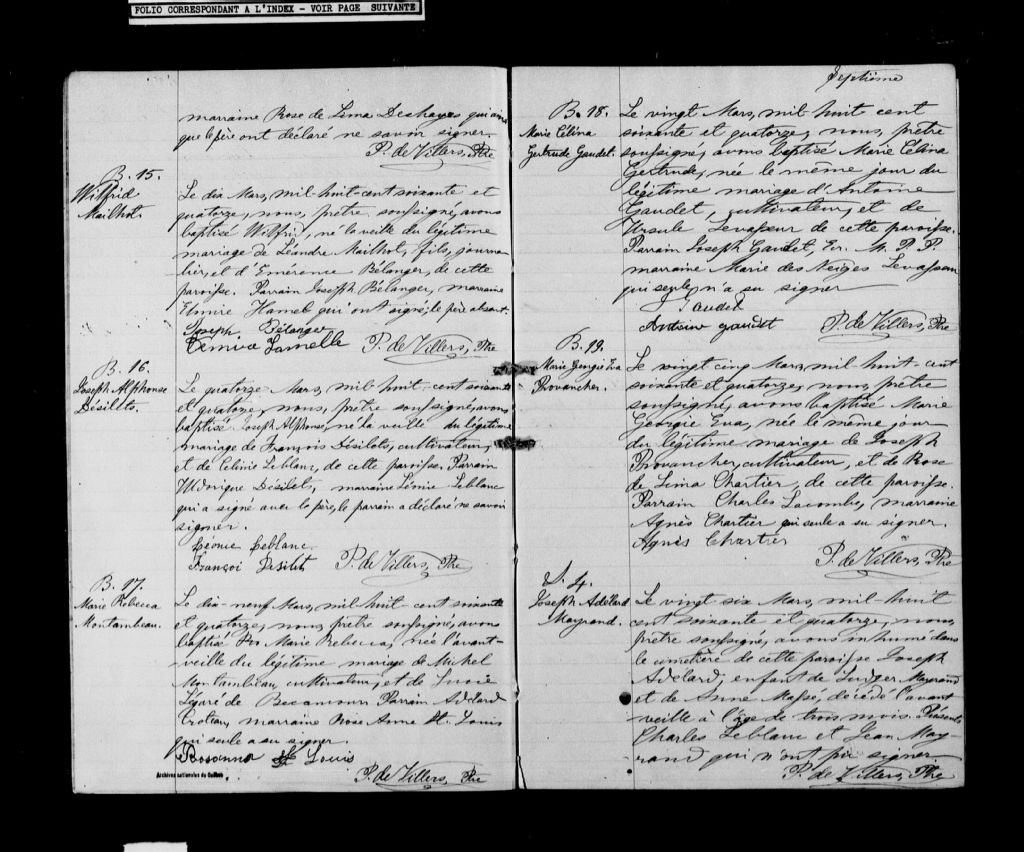 FOLIO CORRESPONDANT A L'INDEX - VOIR PAGE SUIVANTE
marraine Rose de Lima Deshayes qui ainsi
que le père ont déclaré ne savoir signer.
P. de Villers, Ptre
B. 15.
Wilfrid
Mailhot.
Le dix Mars, mil-huit-cent soixante et
quatorze, nous, prêtre soussigné, avons
baptisé Wilfrid, né la veille du légitime
mariage de Léandre Mailhot, fils, journa-
lier, et d'Emérence Bélanger, de cette
paroisse. Parrain Joseph Bélanger, marraine
Elmire Hamel qui ont signé, le père absent.
Joseph Bélanger
P. de Villers, Ptre
B. 16.
Joseph Alphonse
Désilets.
Le quatorze Mars, mil-huit-cent soixante
et quatorze, nous, prêtre soussigné, avons
baptisé Joseph Alphonse, né la veille du légitime
mariage de François Désilets, cultivateur,
et de Celinie Leblanc, de cette paroisse. Parrain
Désilets, marraine Léonie Leblanc
qui a signé avec le père, le parrain a déclaré ne savoir
signer.
Léonie Leblanc
Françoi Desilets P. de Villers, Ptre
B. 17.
Marie Rebecca
Montambeau.
Le dix-neuf Mars, mil-huit-cent soixante
et quatorze, nous, prêtre soussigné, avons
baptisé Marie Rebecca, née l'avant-
veille du légitime mariage de Michel
Montambeau, cultivateur, et de Lucie
Légaré de Becancour. Parrain Adelard
marraine Rose Anne St. Louis
qui seule a su signer.
Rosanna St Louis
Archives nationales du Québec
P. de Villers, Ptre
Septième
B. 18.
Marie Célina
Gertrude Gaudet.
Le vingt Mars, mil huit cent
soixante et quatorze, nous, prêtre
soussigné, avons baptisé Marie Célina
Gertrude, née le même jour du
légitime mariage d'Antoine
Gaudet, cultivateur, et de
Ursule Levasseur de cette paroisse.
Parrain Joseph Gaudet, Ecr. M. P. P.
marraine Marie des Neiges Levasseur
qui seule n'a su signer
J Gaudet
Antoine gaudet P. de Villers, Ptre
B. 19.
Marie Georgie Eva
Provancher.
Le vingt cinq Mars, mil-huit-cent
soixante et quatorze, nous, prêtre
soussigné, avons baptisé Marie
Georgie Eva, née le même jour
du légitime mariage de Joseph
Provancher, cultivateur, et de Rose
de Lima Chartier, de cette paroisse.
Parrain Charles Lacombe, marraine
Agnès Chartier qui seule a su signer.
Agnès Chartier
P. de Villers, Ptre
S. 4.
Joseph Adélard
Mayrand.
Le vingt six Mars, mil-huit
cent soixante et quatorze, nous,
prêtre soussigné, avons inhumé dans
le cimetière de cette paroisse Joseph
Adelard, enfant de Ludger Mayrand
et de Anne Massé, décédé l'avant
veille à l'âge de trois mois. Présents
Charles Leblanc et Jean May-
rand qui n'ont pu signer
P. de Villers, Ptre